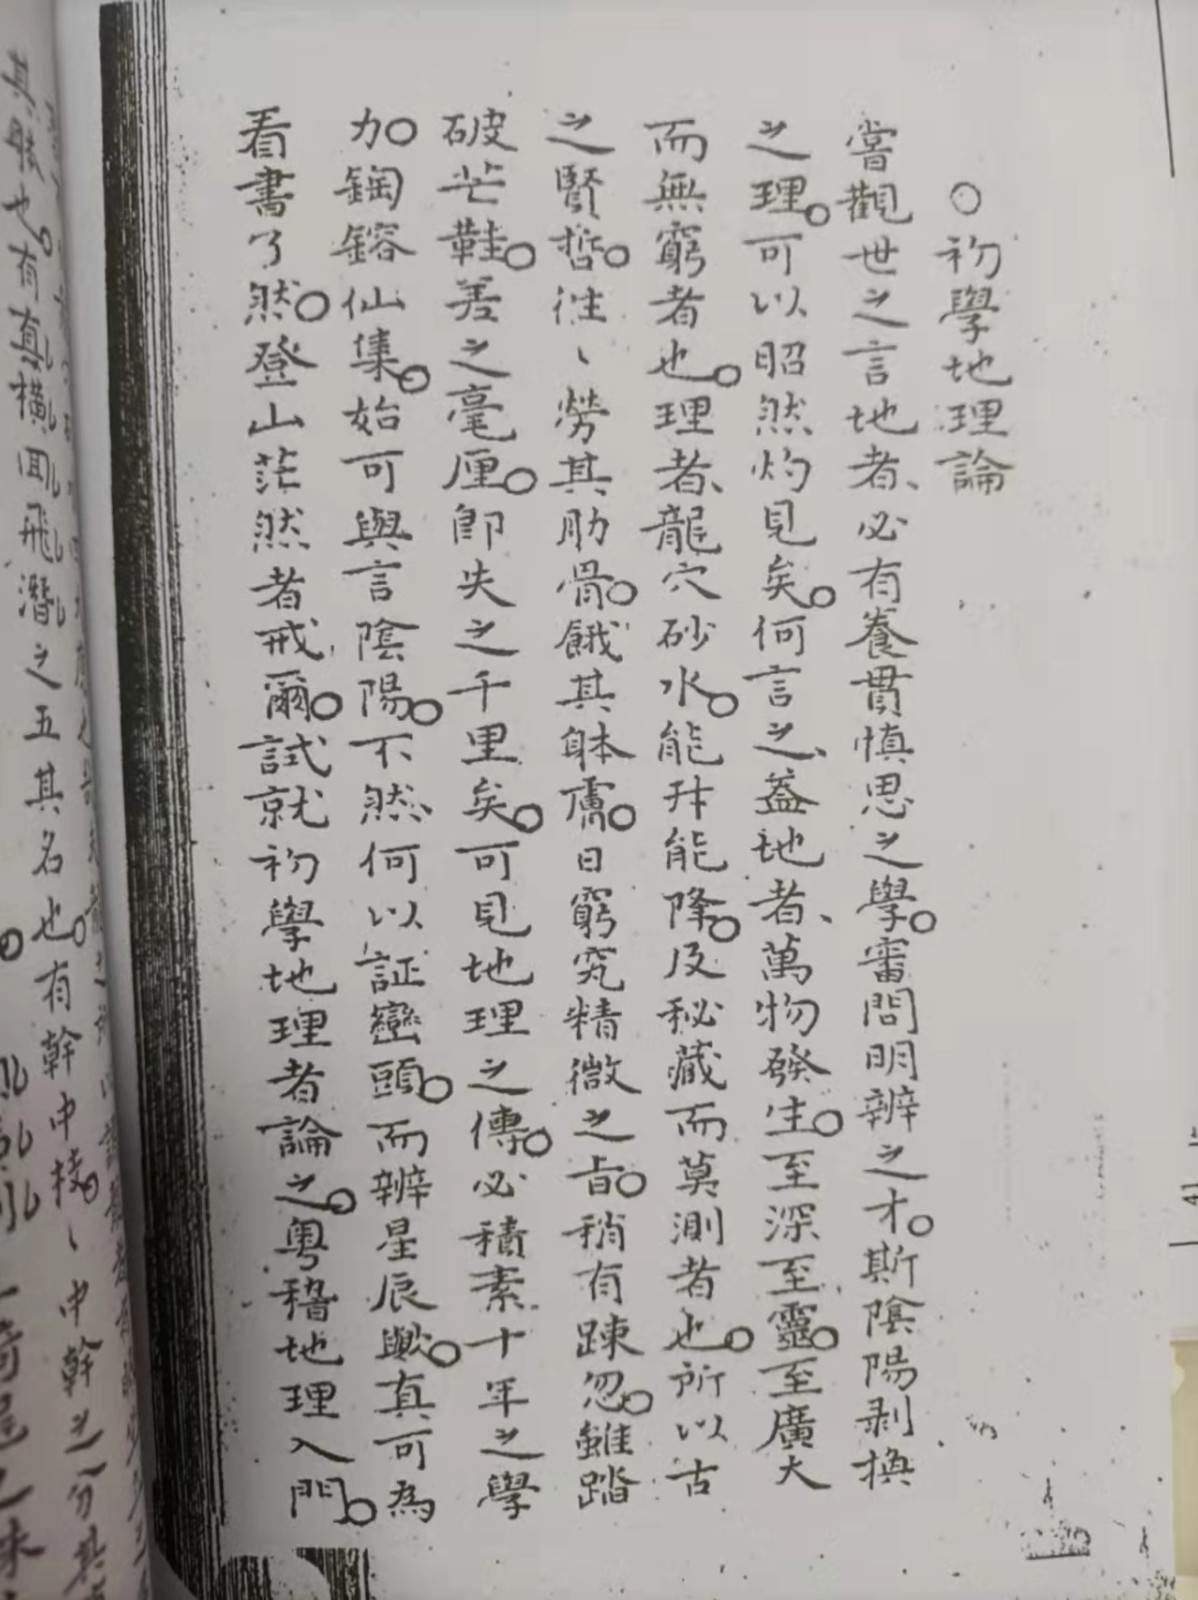 ○初學地理論
嘗觀世之言地者、必有養貫慎思之學。審問明辨之才。斯陰陽剥換
之理。可以昭然灼見矣。何言之、蓋地者、萬物發生。至深至靈。至廣大
而無窮者也。理者、龍穴砂水。能升能降。及秘藏而莫測者也。所以古
之賢哲。徃〻勞其肋骨。餓其躰膚。日窮究精微之旨。稍有踈忽。雖踏
破芒鞋。差之毫厘。即失之千里矣。可見地理之傳。必積素十年之學
力。鋼鎔仙集。始可與言陰陽。不然、何以証巒頭。而辨星辰歟。真可為
看書了然。登山茫然者戒爾。試就初學地理者論之。粤稽地理入門。
其月也。有真橫回飛潛之五其名也。有幹中枝。〻中幹之分其